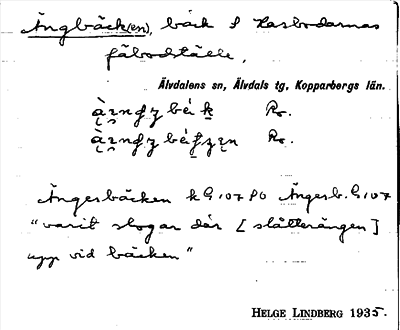 Ängbäck(en), bäck S Hasbodarnas
fäbodställe.
Älvdalens sn, Älvdals tg, Kopparbergs län.
R.
R.
Ängesbäcken k G 107 PO Ängesb. G 107
"varit slogar där [slåtterängen]
upp vid bäcken"
HELGE LINDBERG 1935.